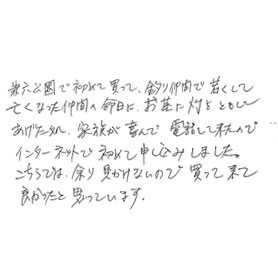 兼六公園で初めて買って、釣り仲間で若くして
亡くなった仲間の命日に、お墓に灯をともして
あげた処、家族が喜んで電話して来たので
インターネットで初めて申し込みしました。
こちらでは、余り見かけないので買って来て
良かったと思っています。